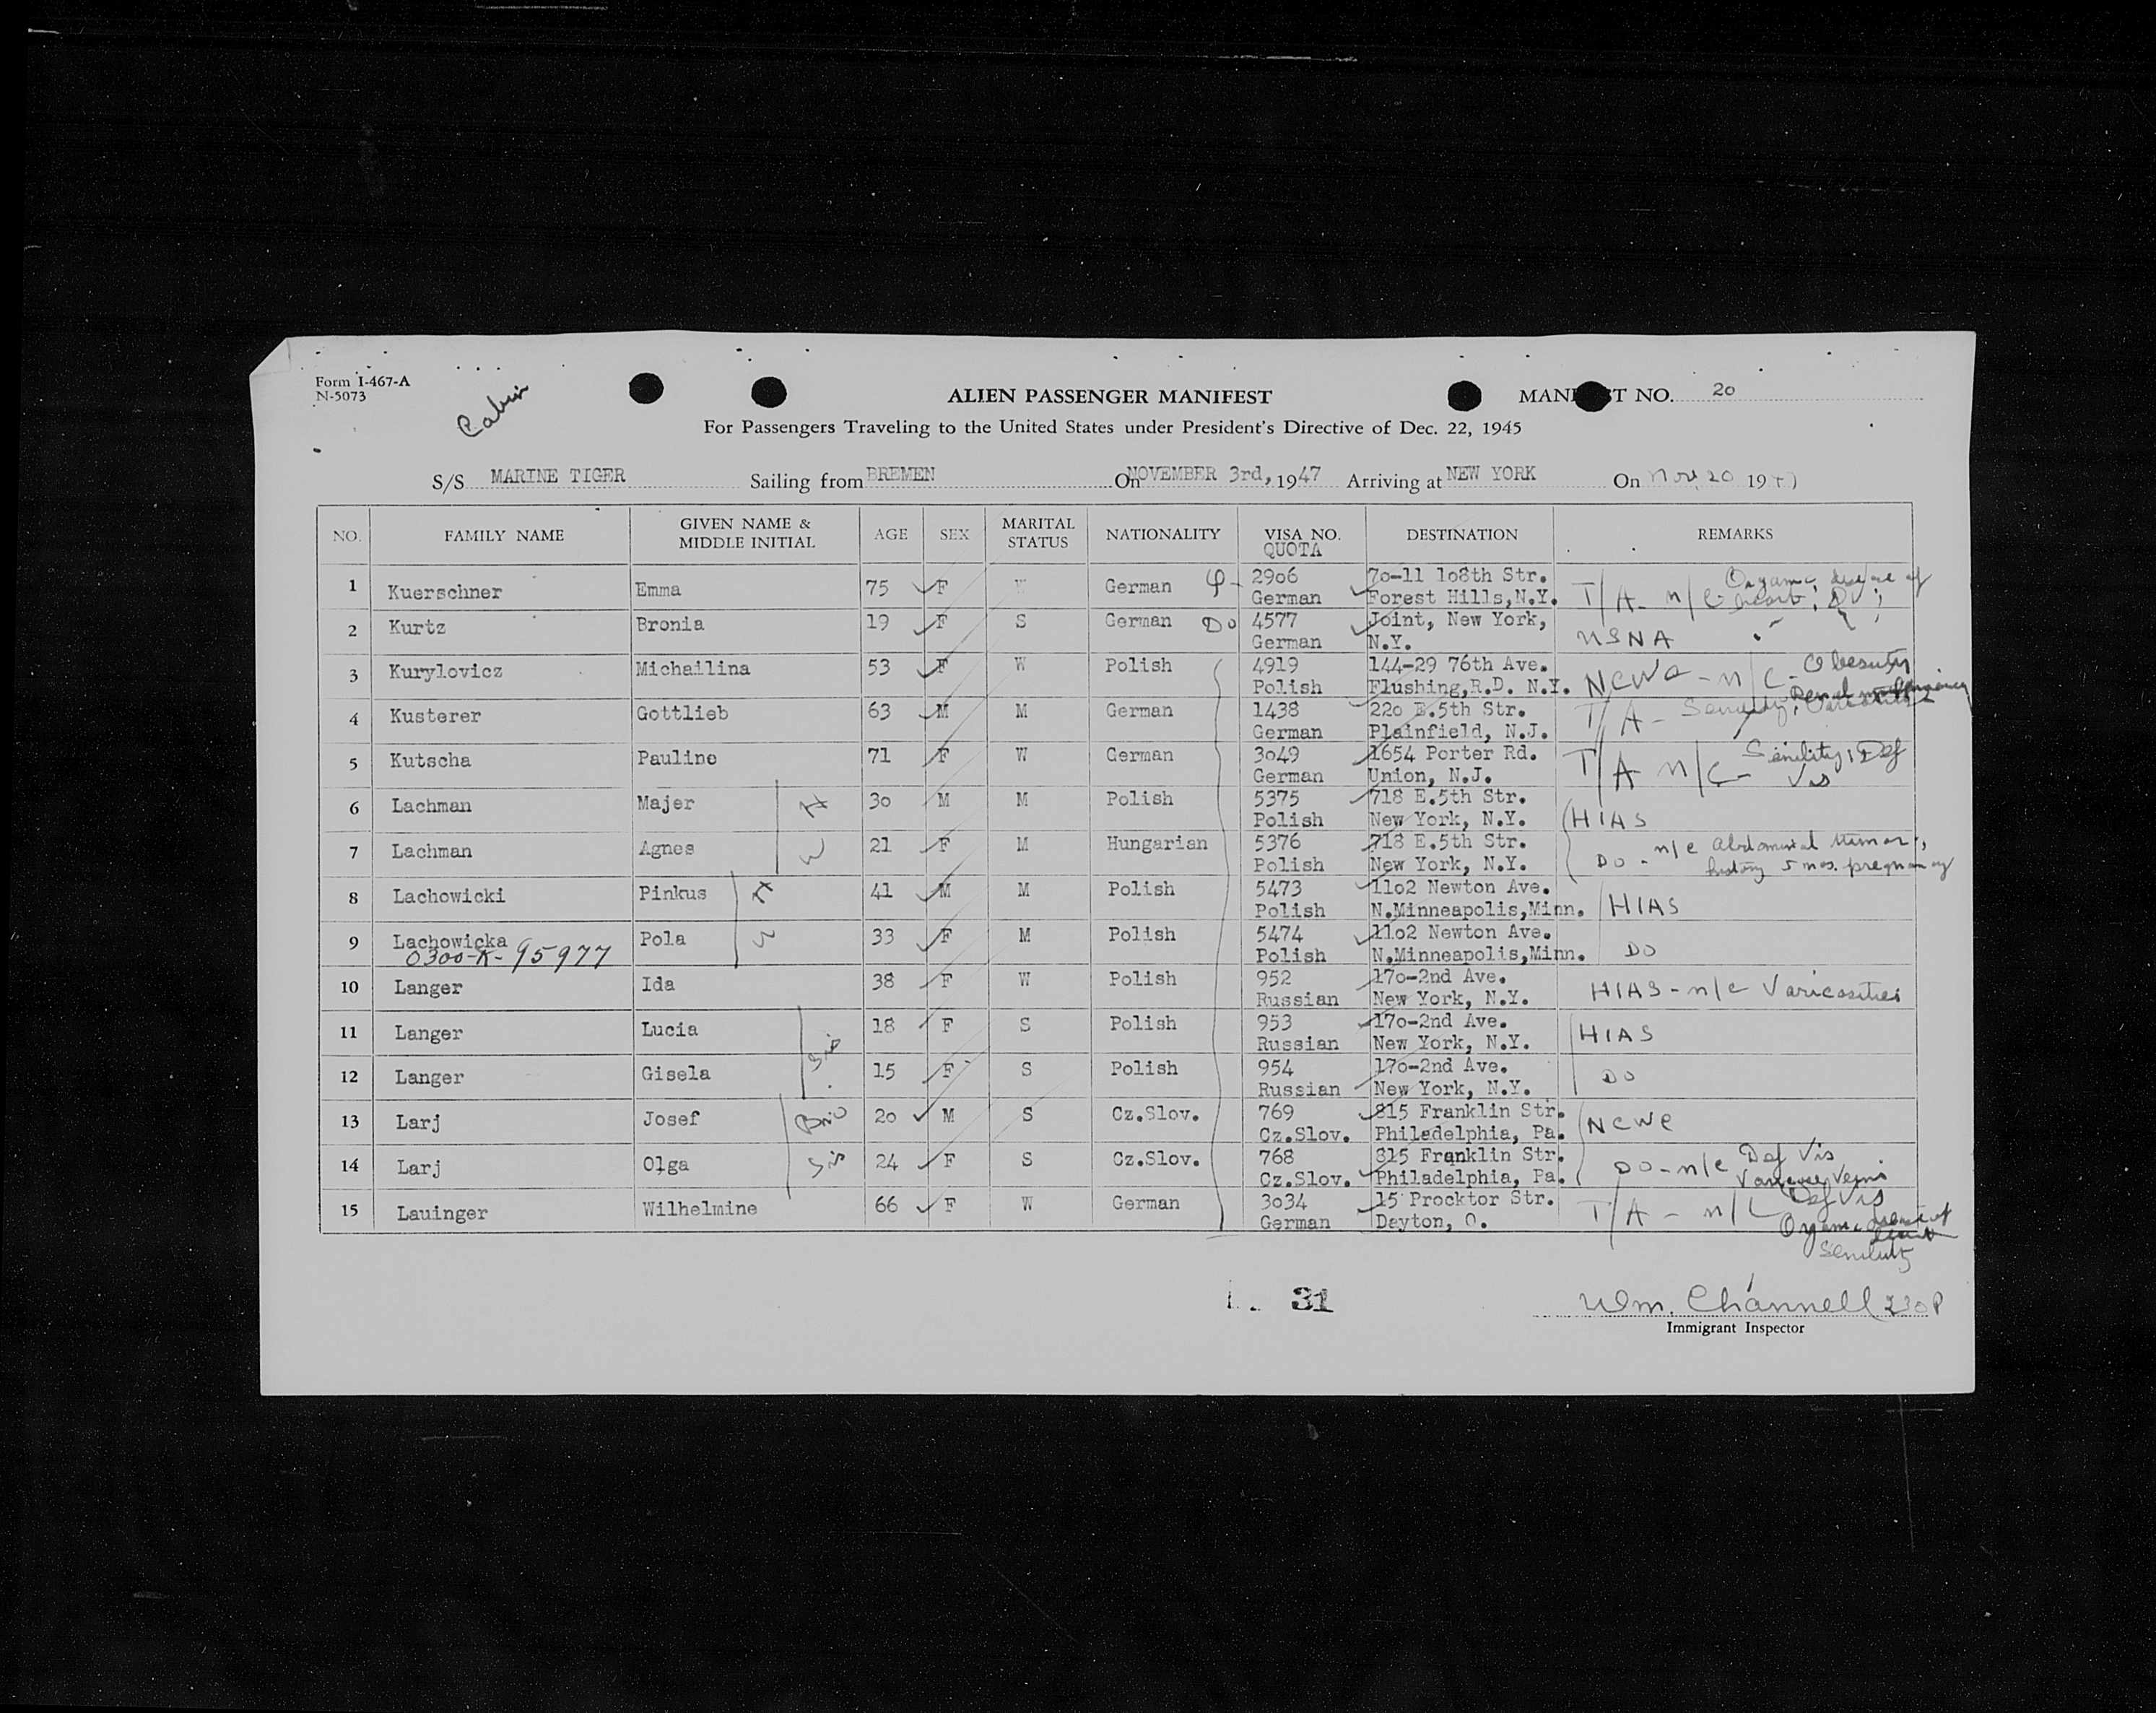 Form I-467-A
N-5073
Cabin
ALIEN PASSENGER MANIFEST
MANIFEST NO. 20
For Passengers Traveling to the United States under President's Directive of Dec. 22, 1945
S/S MARINE TIGER Sailing from BREMEN On NOVEMBER 3rd, 1947 Arriving at NEW YORK On Nov. 20 1947
NO. FAMILY NAME GIVEN NAME & MIDDLE INITIAL AGE SEX MARITAL STATUS NATIONALITY VISA NO. QUOTA DESTINATION REMARKS
1 Kuerschner Emma 75 F W German 2906 70-11 108th Str. Organic disease of
German Forest Hills, N.Y. T/A - n/c heart;
2 Kurtz Bronia 19 F S German Do 4577 Joint, New York,
German N.Y. USNA
3 Kurylovicz Michailina 53 F W Polish 4919 144-29 76th Ave.
Polish Flushing,R.D. N.Y. NCWC - n/c - Obesity
4 Kusterer Gottlieb 63 M M German 1438 220 E.5th Str. T/A - Senility;
German Plainfield, N.J.
5 Kutscha Pauline 71 F W German 3049 1654 Porter Rd. T/A n/c - Senility; Def
German Union, N.J. Vis
6 Lachman Majer H 30 M M Polish 5375 718 E.5th Str.
Polish New York, N.Y. HIAS
7 Lachman Agnes W 21 F M Hungarian 5376 718 E.5th Str. Do - n/c Abdominal tumor,
Polish New York, N.Y. history 5 mos. pregnancy
8 Lachowicki Pinkus H 41 M M Polish 5473 1102 Newton Ave.
Polish N.Minneapolis,Minn. HIAS
9 Lachowicka Pola W 33 F M Polish 5474 1102 Newton Ave.
0300-K-95977 Polish N.Minneapolis,Minn. DO
10 Langer Ida 38 F W Polish 952 170-2nd Ave.
Russian New York, N.Y. HIAS - n/c Varicosities
11 Langer Lucia 18 F S Polish 953 170-2nd Ave.
Russian New York, N.Y. HIAS
Sis
12 Langer Gisela 15 F S Polish 954 170-2nd Ave.
Russian New York, N.Y. DO
13 Larj Josef Bro 20 M S Cz.Slov. 769 815 Franklin Str.
Cz.Slov. Philadelphia, Pa. NCWC
14 Larj Olga Sis 24 F S Cz.Slov. 768 815 Franklin Str. DO - n/c Def Vis
Cz.Slov. Philadelphia, Pa. Varicose Veins
15 Lauinger Wilhelmine 66 F W German 3034 15 Procktor Str. T/A - n/c Def Vis
German Dayton, O. Organic disease of
heart
Senility
31
Wm. Channell 230P
Immigrant Inspector